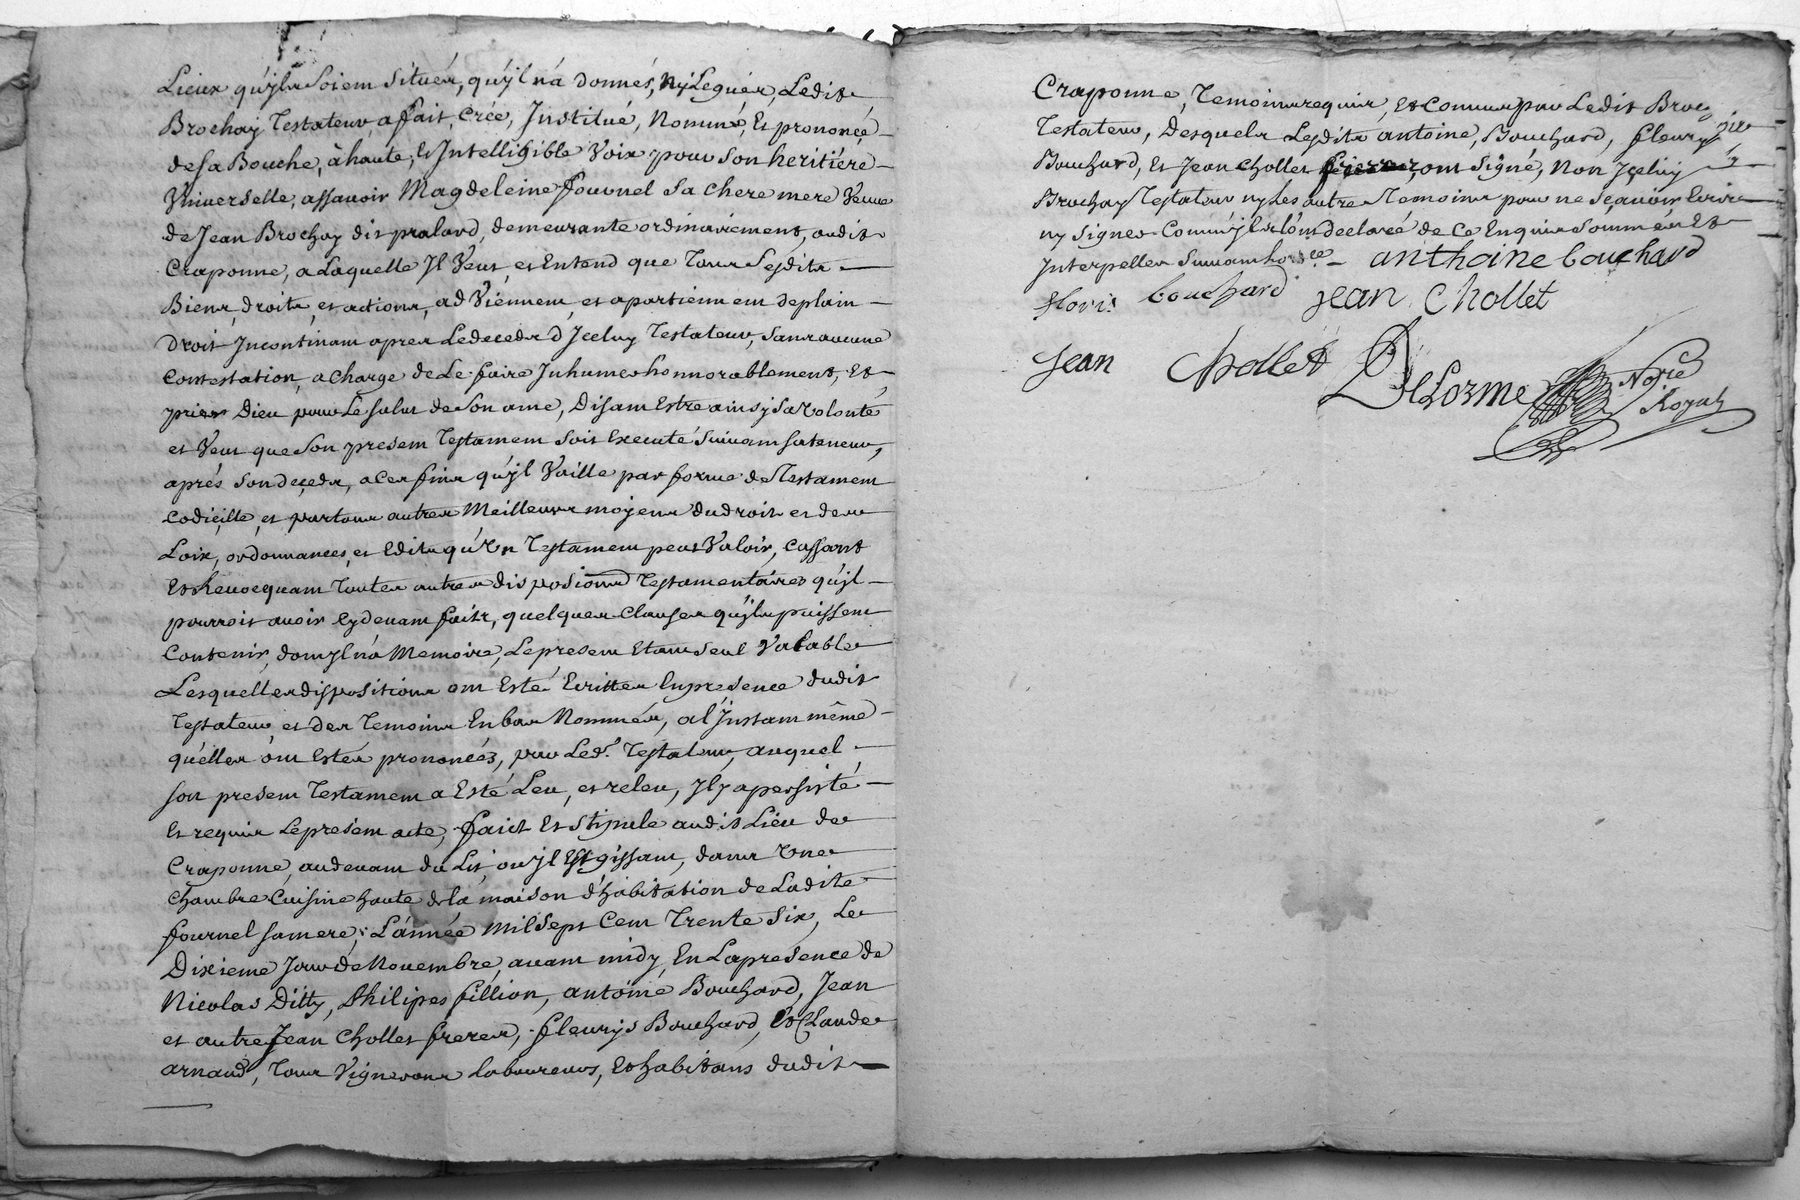 Lieux qu'ylz Soient Situés, qu'yl n'a donnés, Ny Legués, Ledit
Brochay Testateur, a fait, Créé, Institué, Nommé, Et prononcé
de Sa Bouche, à haute, Et Intelligible Voix pour Son heritière
Universelle, assavoir Magdeleine fournel Sa Chere mere Veuve
de Jean Brochay dit pralard, demeurante ordinairement, audit
Craponne, a Laquelle Il Veut, et Entend que Tous Sesdits
Biens, droits, et actions, adViennent, et apartiennent deplain
Droit Incontinant apres Ledeceds d'Iceluy Testateur, Sans aucune
Contestation, a Charge de Le faire Inhumer honnorablement, Et
prier Dieu pour Le Salut de Son ame, Disant Estre ainsy Sa Volonté
et Veut que Son present Testament Soit Executé Suivant Sa teneur,
aprés Son deçeds, a Ces fins qu'yl Vaille par forme de Testament
Codiçille, et par tous autres Meilleurs moyens du droit et des
Loix, ordonnances, et Edits qu'Un Testament peut Valoir, Cassant
Et Revocquant Toutes autres dispositions Testamentaires qu'yl
pourroit avoir Cydevant faits, quelques Clauses qu'yls puissent
Contenir, dont yl n'a Memoire, Le present Etant Seul Valable
Lesquelles dispositions ont Esté Ecrittes En presence dudit
Testateur, et des Temoins En bas Nommés, a l'Instant même
qu'elles ont Estés prononcés, par Led.t Testateur, auquel
Son present Testament a Esté Leu, et releu, Il y a persisté
Et requis Le present acte, faict Et Stipulé audit Lieu de
Craponne, au devant du Lit, ou yl Est gissant, dans Une
Chambre Cuisine haute de la maison d'habitation de Ladite
fournel Sa mere, L'année Mil Sept Cent Trente Six, Le
Dixieme Jour de Novembre, avant midy, En La presence de
Nicolas Ditty, Philipes fillion, antoine Bouchard, Jean
et autre Jean Chollet freres, fleurys Bouchard, Et Claude
arnaud, Tous Vignerons Laboureurs, Et habitans dudit
Craponne, Temoins requis, Et Connus par Ledit Broc
Testateur, Desquels Lesdits antoine, Bouchard, fleury
Bouchard, Et Jean Chollet ont Signé, Non Iceluy
Brochay Testateur ny Les autres Temoins pour ne Sçavoir Ecrire
ny Signer Comm'yls l'ont declaré de Ce Enquis Sommés Et
Interpellés Suivant anthoine bouchard
floris bouchard jean Chollet
jean Chollet DeLorme No.re
Royal